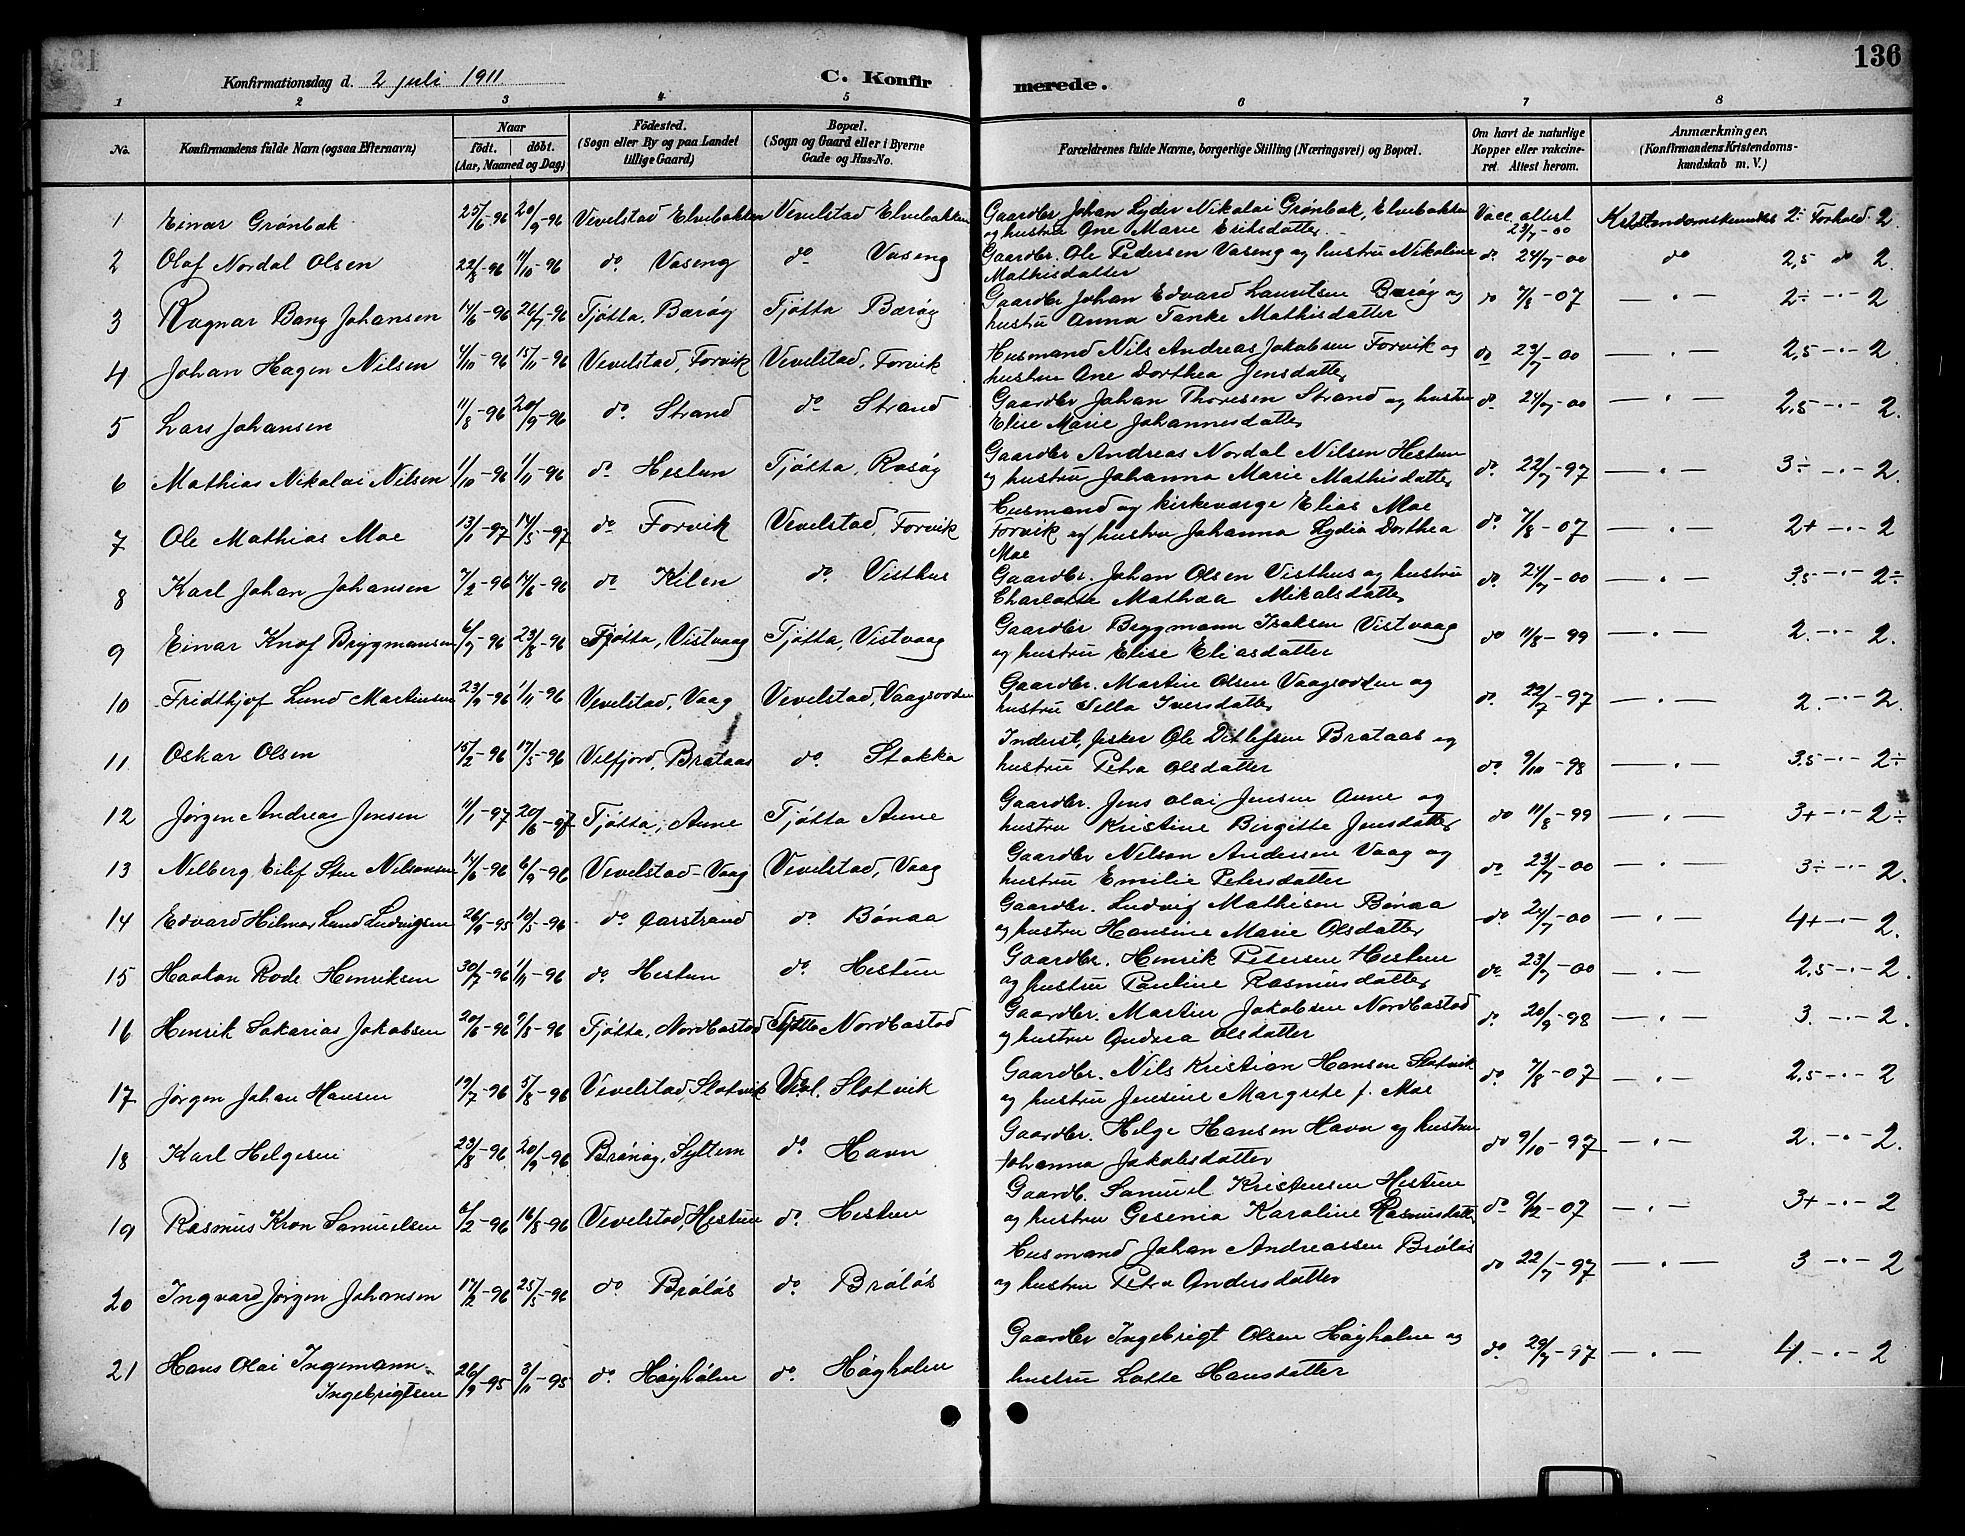 136
Konfirmationsdag d. 2 juli 1911
C. Konfirmerede.
1 2 3 4 5 6 7 8
No. Konfirmandens fulde Navn (ogsaa Efternavn) Naar födt. döbt. (Aar, Maaned og Dag) Födested. (Sogn eller By og paa Landet tillige Gaard) Bopæl. (Sogn og Gaard eller i Byerne Gade og Hus-No. Forældrenes fulde Navne, borgerlige Stilling (Næringsvei) og Bopæl. Om havt de naturlige Kopper eller vakcineret. Attest herom. Anmærkninger. (Konfirmandens Kristendomskundskab m. V.)
1 Einar Grönbæk 25/6-96 20/9-96 Vevelstad Elvebakken Vevelstad Elvebakken Gaardbr. Johan Lyder Nikolai Grönbæk, Elvebakken
og hustru Ane Marie Eriksdatter Vacc. attest 23/7-00 2÷ Forhold 2.
2 Olaf Nordal Olsen 22/8-96 11/10-96 do Vaseng do Vaseng Gaardbr. Ole Pedersen Vaseng og hustru Nikoline
Mathisdatter do 24/7-00 do 2,5 do 2.
3 Ragnar Bang Johansen 14/6-96 26/7-96 Tjötta, Baröy Tjötta Baröy Gaardbr Johan Edvard Lauritsen Baröy og
hustru Anna Tanke Mathisdatter do 7/8-07 — " — 2÷ -"- 2
4 Johan Hagen Nilsen 4/10-96 15/11-96 Vevelstad, Forvik Vevelstad, Forvik Husmand Nils Andreas Jakobsen Forvik og
hustru Ane Dorthea Jensdatter do 23/7-00 — " — 2,5 -"- 2
5 Lars Johansen 11/8-96 20/9-96 do Strand do Strand Gaardbr Johan Thoresen Strand og hustru
Elise Marie Johannesdatter do 24/7-00 — " — 2,5 -"- 2.
6 Mathias Nikolai Nilsen 1/10-96 1/11-96 do Hestun Tjötta, Rosöy Gaardbr Andreas Nordal Nilsen Hestun
og hustru Johanna Marie Mathisdatter do 22/7-97 — " — 3÷ -"- 2.
7 Ole Mathias Moe 13/1-97 14/5-97 do Forvik Vevelstad, Forvik Husmand og kirkeværge Elias Moe
Forvik og hustru Johanna Lydia Dorthea
Moe do 7/8-07 — " — 2+ -"- 2
8 Karl Johan Johansen 7/2-96 14/6-96 do Kilen do Visthus Gaardbr. Johan Olsen Visthus og hustru
Charlotte Mathea Mikalsdatter do 24/7-00 — " — 3,5 -"- 2÷
9 Einar Knof Brygmansen 6/7-96 23/8-96 Tjötta, Vistvaag Tjötta, Vistvaag Gaardbr Brygmann Isaksen Vistvaag
og hustru Elise Eliasdatter do 11/8-99 — " — 2. -"- 2.
10 Fridthjof Lund Martinsen 23/9-96 1/11-96 Vevelstad, Vaag Vevelstad, Vaagsodden Gaardbr. Martin Olsen Vaagsodden og
hustru Sella Iversdatter do 22/7-97 — " — 2. -"- 2.
11 Oskar Olsen 15/2-96 17/5-96 Velfjord, Brataas do Stokka Inderst, fisker Ole Ditlefsen Brataas og
hustru Petra Olsdatter do 9/10-98 — " — 3.5 -"- 2÷
12 Jørgen Andreas Jensen 11/1-97 20/6-97 Tjötta, Aune Tjötta Aune Gaardbr. Jens Olai Jensen Aune og
hustru Kristine Birgitte Jensdatter do 11/8-99 — " — 3+ -"- 2÷
13 Nilberg Eilif Sten Nilsonsen 14/6-96 6/9-96 Vevelstad-Vaag Vevelstad, Vaag Gaardbr Nelson Andersen Vaag og
hustru Emilie Petersdatter do 23/7-00 — " — 3÷ -"- 2.
14 Edvard Hilmar Lund Ludvigsen 10/5-96 do Aarstrand do Bönaa Gaardbr. Ludvig Mathisen Bönaa
og hustru Hansine Marie Olsdatter do 24/7-00 — " — 4+ -"- 2.
15 Haakon Rode Henriksen 30/7-96 1/11-96 do Hestun do Hestun Gaardbr. Henrik Petersen Hestun
og hustru Pauline Rasmusdatter do 23/7-00 — " — 2.5 -"- 2.
16 Henrik Sakarias Jakobsen 20/6-96 9/8-96 Tjötta, Nordbostad Tjötta Nordbostad Gaardbr. Martin Jakobsen Nordbostad
og hustru Andrea Olsdatter do 20/9-98 — " — 3. -"- 2.
17 Jørgen Johan Hansen 19/7-96 5/8-96 Vevelstad, Slotvik Slotvik Gaardbr. Nils Kristian Hansen Slotvik
og hustru Jensine Margrete f. Moe do 7/8-07 — " — 2,5 -"- 2
18 Karl Helgesen 23/8-96 20/9-96 Brönöy, Syltern do Havn Gaardbr. Helge Hansen Havn og hustru
Johanna Jakobsdatter do 9/10-97 — " — 2. -"- 2.
19 Rasmus Kron Samuelsen 6/2-96 16/8-96 Vevelstad, Hestun do Hestun Gaardb. Samuel Kristensen Hestun
og hustru Gesenia Karoline Rasmusdatter do 9/2-07 — " — 3+ -"- 2
20 Ingvard Jørgen Johansen 17/2-96 25/5-96 do Bröløs do Bröløs Husmand Johan Andreassen Bröløs
og hustru Petra Andersdatter do 22/7-97 — " — 3 -"- 2
21 Hans Olai Ingemann
Ingebrigtsen 26/9-95 3/11-95 do Höyholm do Höyholm Gaardbr Ingebrigt Olsen Höyholm og
hustru Lotte Hansdatter do 29/7-97 — " — 4. -"- 2